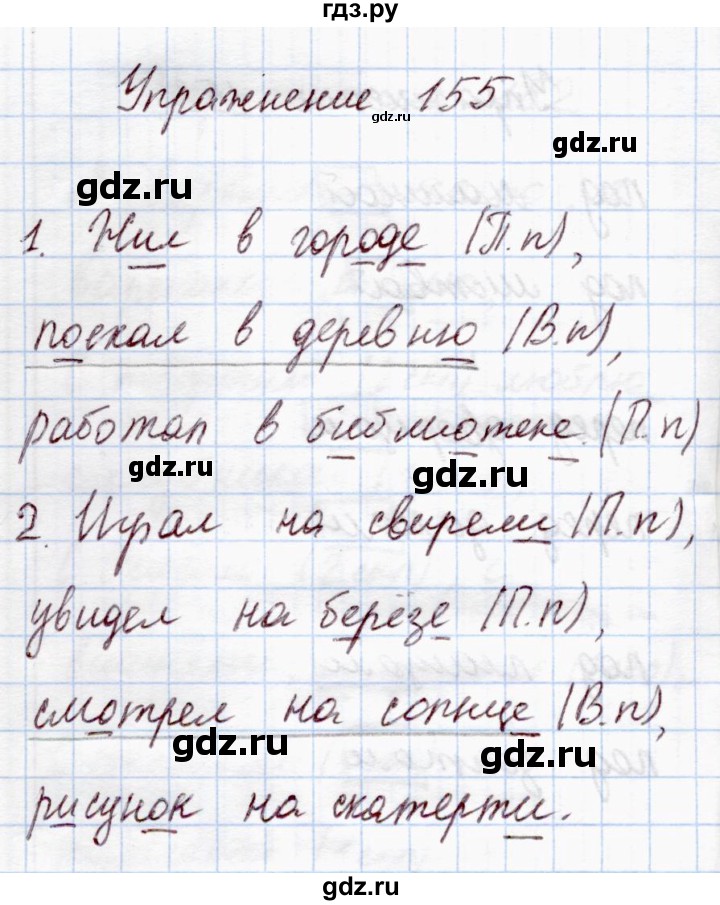 гдз.ру
Упражнение 155
gdz.ru
gdz.ru
1. Жил в городе (П.п),
gdz.ru
поехал в деревню (В.п),
работал в библиотеке (П.п)
gdz.ru
gdz.ru
2. Играл на свирели (П.п),
увидел на берёзе (П.п),
gdz.ru
смотрел на солнце (В.п),
gdz.ru
gdz.ru
рисунок на скатерти.
gdz.ru